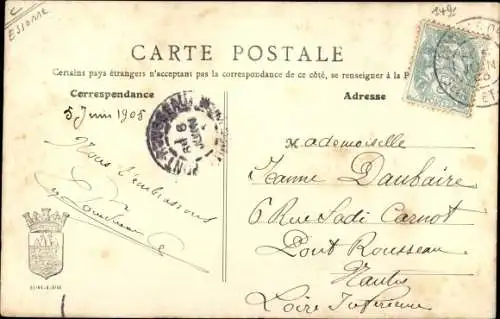 Essonne
CARTE POSTALE
Certains pays étrangers n'acceptant pas la correspondance de ce côté, se renseigner à la P
Correspondance
Adresse
5 Juin 1905
Vous l'embrassons
Mademoiselle
Jeanne Daubaire
6 Rue Sadi Carnot
Pont Rousseau
Nantes
Loire Inférieure